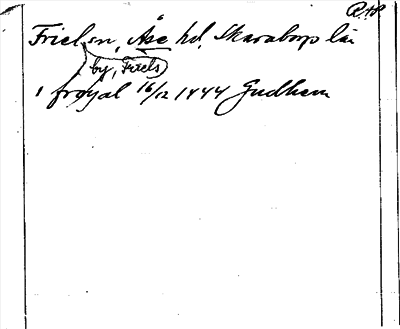 R+P
Friel sn, Åse hd, Skaraborgs län
by, Friels
i froyal 16/12 1444 Gudhem